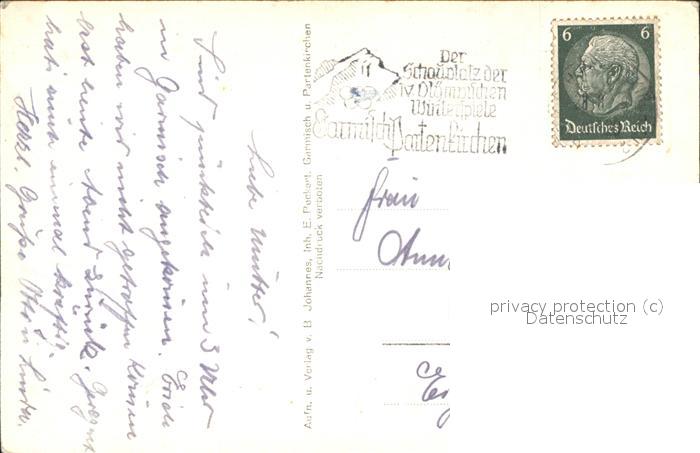 Liebe Mutter!
Sind pünktlich um 3 Uhr
in Garmisch angekommen. Erich
haben wir nicht getroffen
erst heute Abend zurück.
hat auch einmal kräftig
Herzl. Grüße
Aufn. u. Verlag v. B. Johannes, Inh. E. Packert, Garmisch u. Partenkirchen
Nachdruck verboten
Der
Schauplatz der
IV. Olympischen
Winterspiele
Garmisch
Partenkirchen
6 6
Deutsches Reich
Frau
privacy protection (c)
Datenschutz